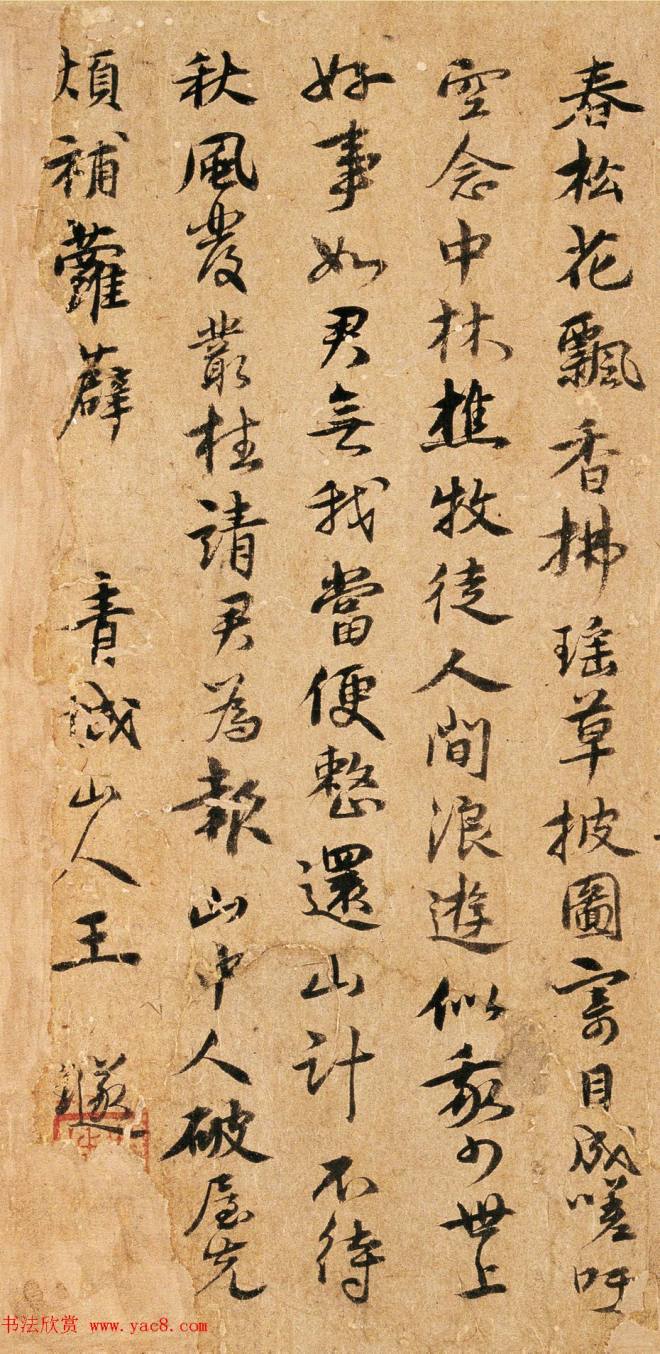 春松花飄香拂瑶草披圖寄目成嗟吁
空念中林樵牧徒人間浪遊似我少世上
好事如君無我當便整還山計不待
秋風發叢桂請君為報山中人破屋先
煩補蘿薜 青城山人王
书法欣赏 www.yac8.com